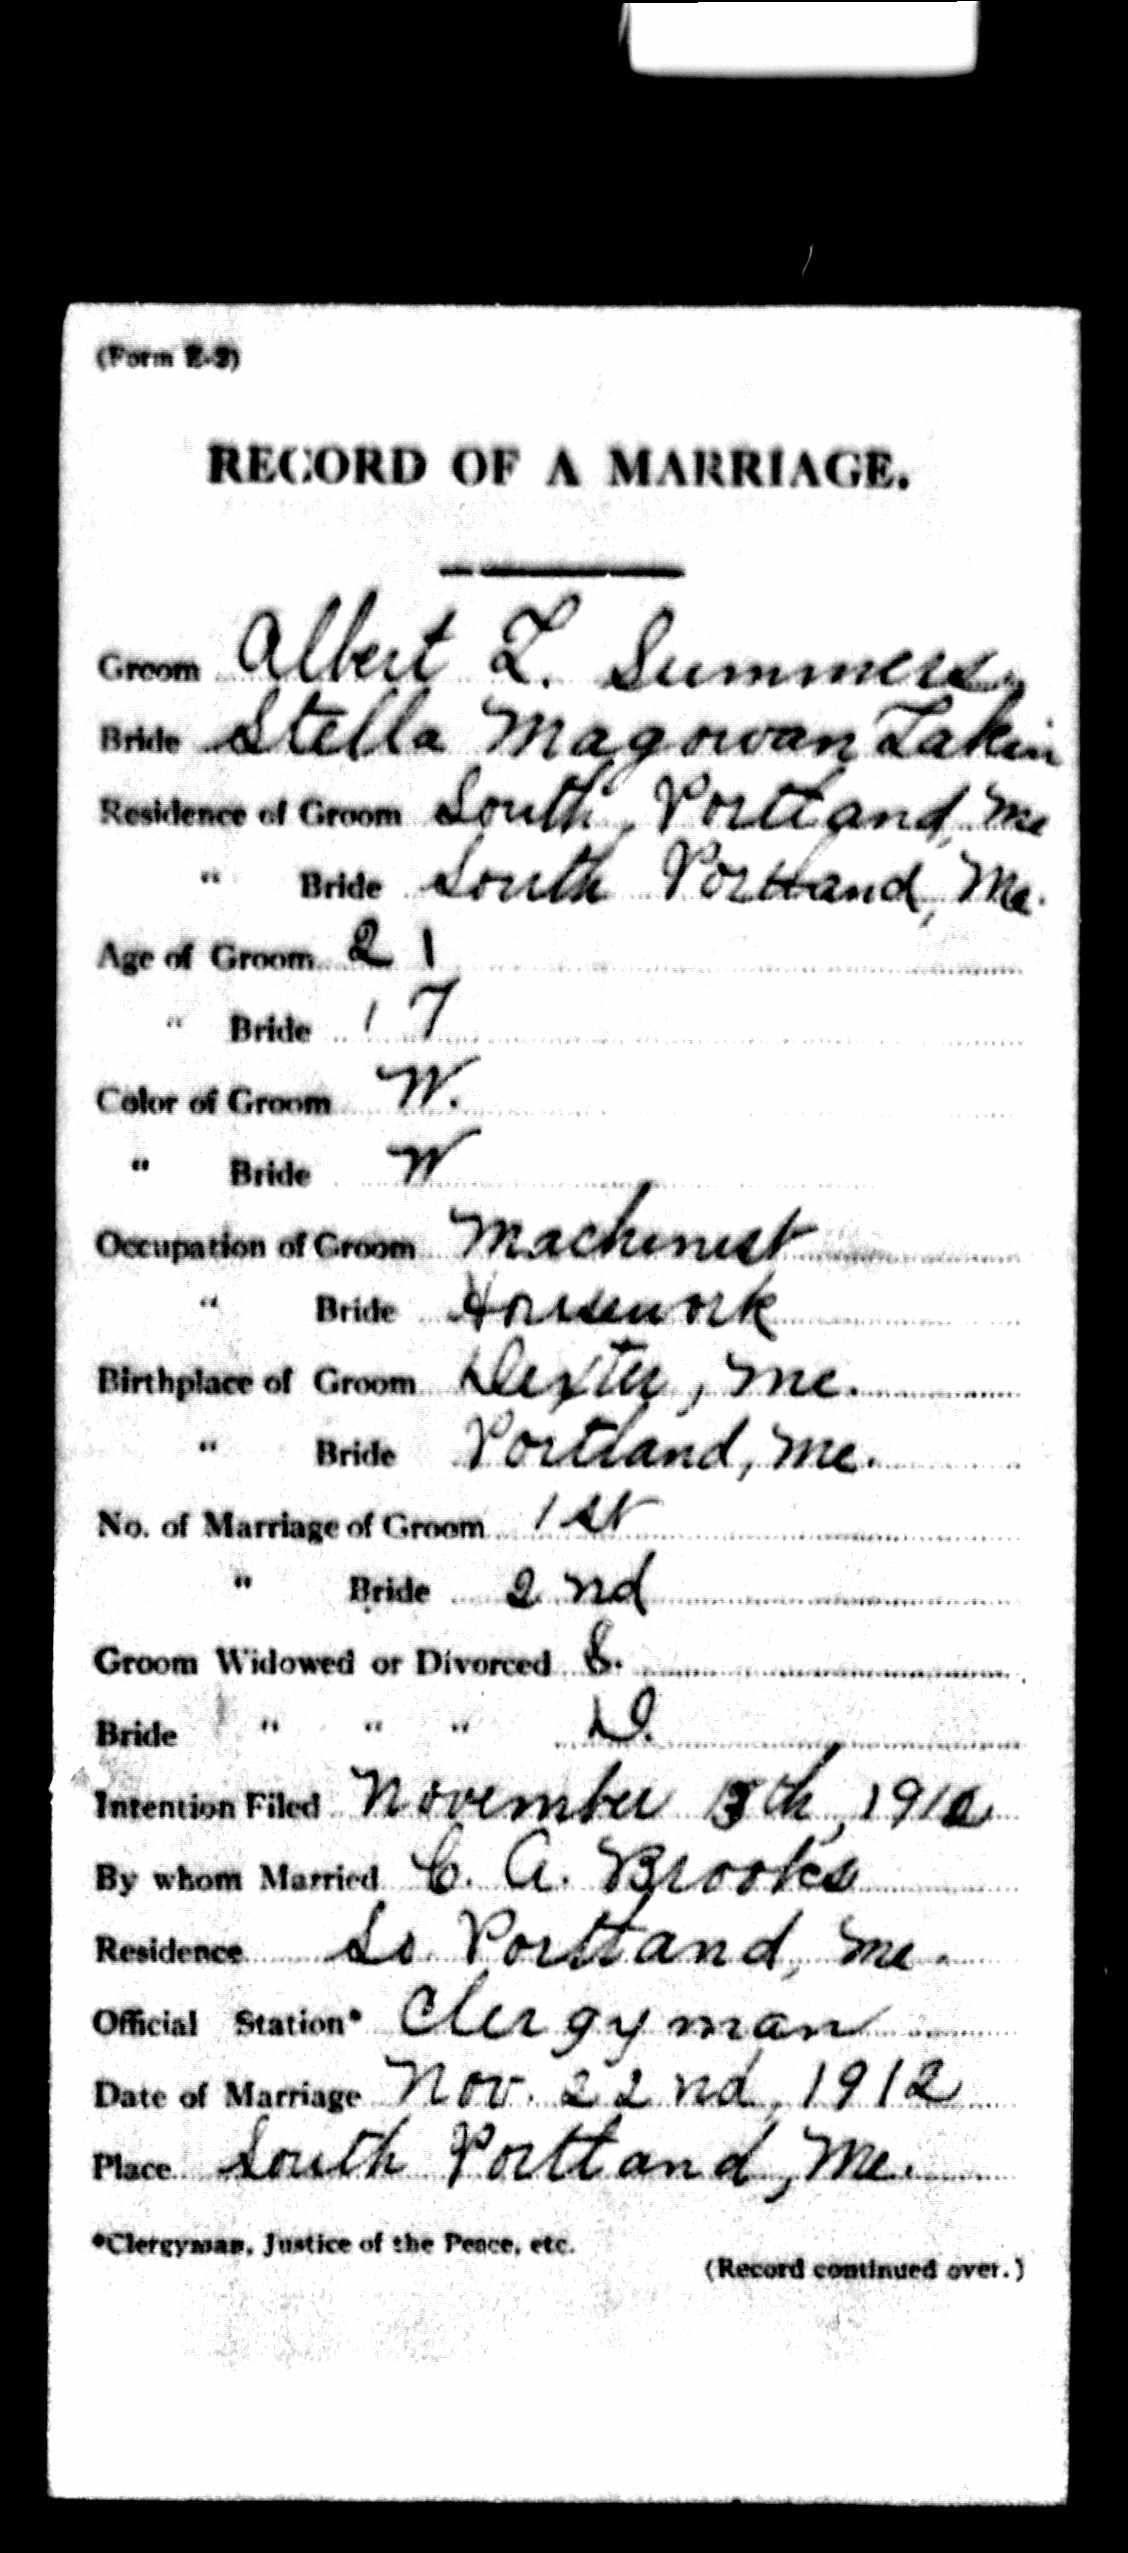 (Form E-2)
RECORD OF A MARRIAGE.
Groom Albert L. Summers,
Bride Stella Magowan Lakin
Residence of Groom South, Portland, Me
" Bride South Portland, Me.
Age of Groom 21
" Bride 17
Color of Groom W.
" Bride W
Occupation of Groom Machinist
" Bride Housework
Birthplace of Groom Dexter, Me.
" Bride Portland, Me.
No. of Marriage of Groom 1st
" Bride 2nd
Groom Widowed or Divorced S.
Bride " " " D.
Intention Filed November 1912
By whom Married C. A. Brooks
Residence So. Portland, Me.
Official Station* Clergyman
Date of Marriage Nov. 22nd, 1912
Place South Portland, Me.
*Clergyman, Justice of the Peace, etc.
(Record continued over.)